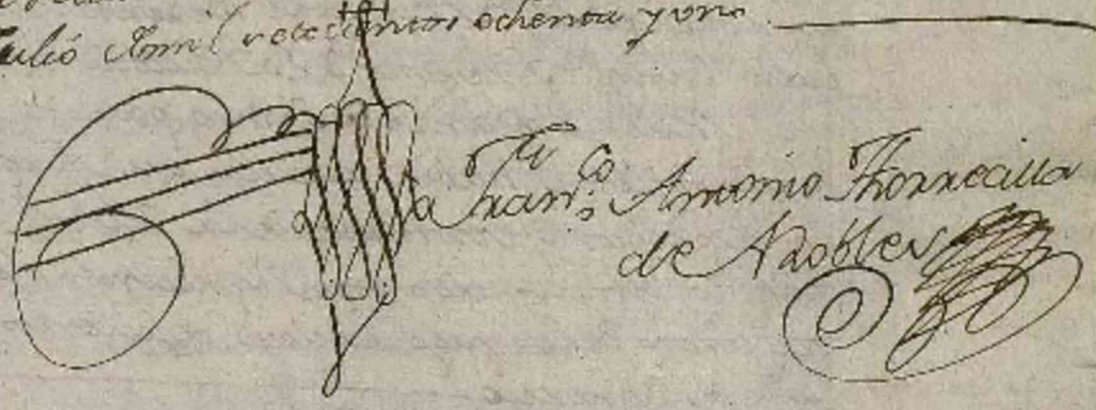 Julió de mil setecientos ochenta y uno
Fran.co Antonio Thorrecilla
de Robles